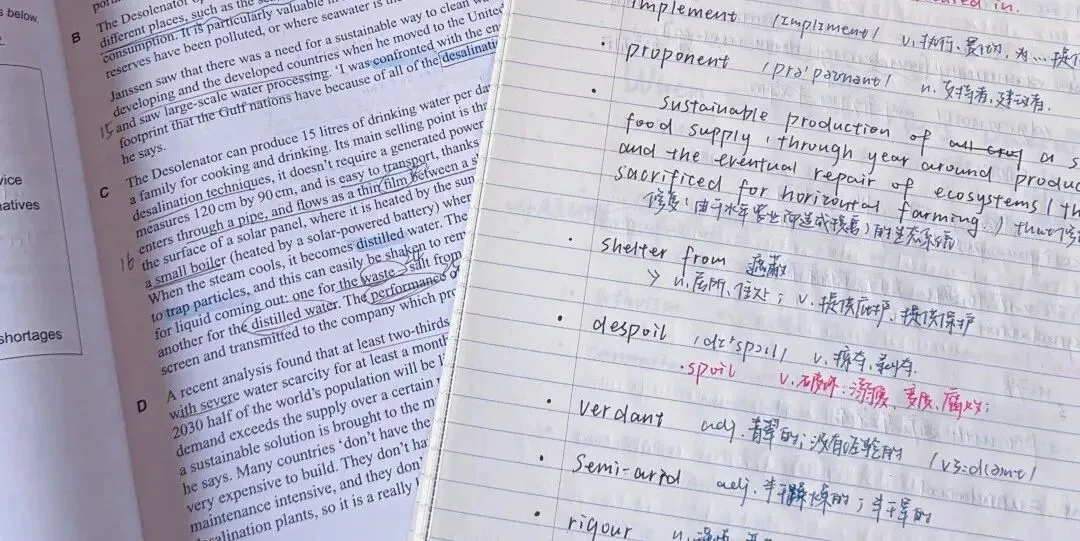 s below.
vice
natives
shortages
B
The Desolenator
different places, such as the
consumption. It is particularly valuable in
reserves have been polluted, or where seawater is the
Janssen saw that there was a need for a sustainable way to clean
developing and the developed countries when he moved to the United
15 and saw large-scale water processing. 'I was confronted with the
footprint that the Gulf nations have because of all of the desalinati
he says.
C
The Desolenator can produce 15 litres of drinking water per da
a family for cooking and drinking. Its main selling point is tha
desalination techniques, it doesn't require a generated power
measures 120cm by 90cm, and is easy to transport, thanks
enters through a pipe, and flows as a thin film between a s
16 the surface of a solar panel, where it is heated by the sun
a small boiler (heated by a solar-powered battery) wher
When the steam cools, it becomes distilled water. The
to trap particles, and this can easily be shaken to rem
for liquid coming out: one for the waste – salt from
another for the distilled water. The performance o
screen and transmitted to the company which pr
D
A recent analysis found that at least two-thirds
with severe water scarcity for at least a month
2030 half of the world's population will be l
demand exceeds the supply over a certain
a sustainable solution is brought to the m
he says. Many countries 'don't have the
very expensive to build. They don't ha
maintenance intensive, and they don
salination plants, so it is a really
in.
implement /ˈɪmplɪment/ v. 执行、贯彻, 为…提供
proponent /prəˈpəʊnənt/ n. 支持者, 建议者.
sustainable production of a s
food supply, through year around produc
and the eventual repair of ecosystems (th
sacrificed for horizontal farming.) that
修复(由于水平农业所造成损害)的生态系统
shelter from 遮蔽
n. 居所、住处; v. 提供庇护、提供保护
despoil /dɪˈspɔɪl/ v. 掠夺、剥夺.
·spoil v. 破坏; 溺爱、变质、腐败;
verdant adj. 青翠的;
semi-arid adj. 半干旱的
rigour n.